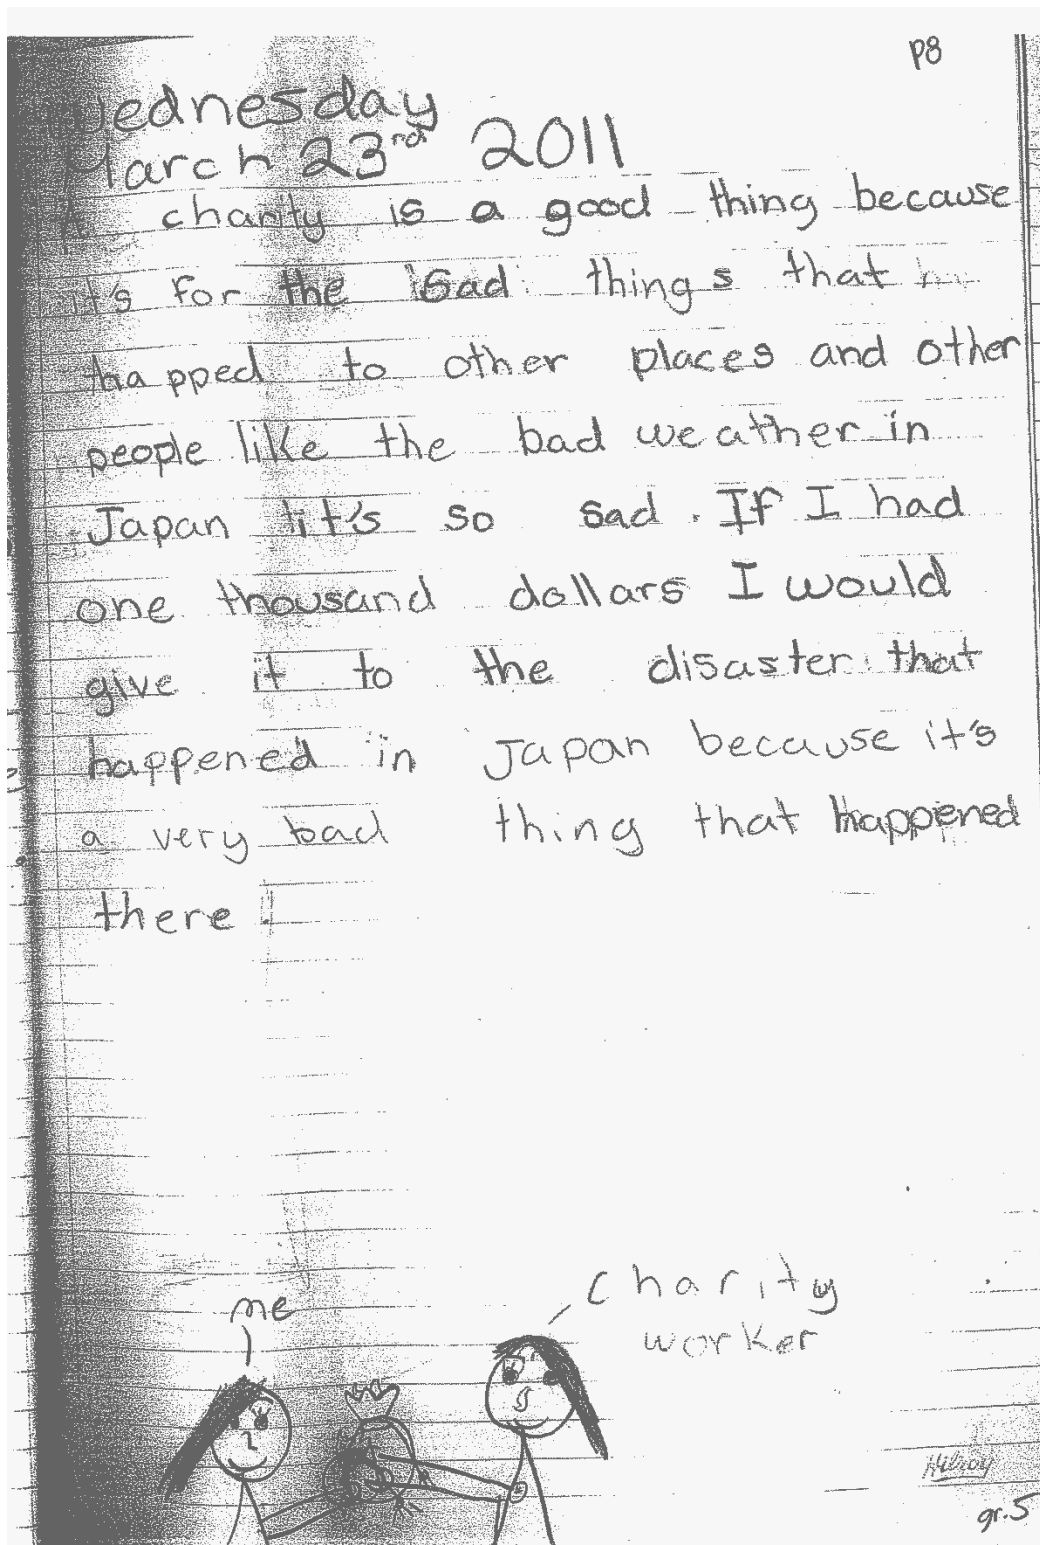 p8
Wednesday
March 23rd 2011
A charity is a good thing because
it's for the sad things that
happed to other places and other
people like the bad weather in
Japan it's so sad. If I had
one thousand dollars I would
give it to the disaster that
happened in Japan because it's
a very bad thing that happened
there.
me
charity
worker
Hilroy
gr.5